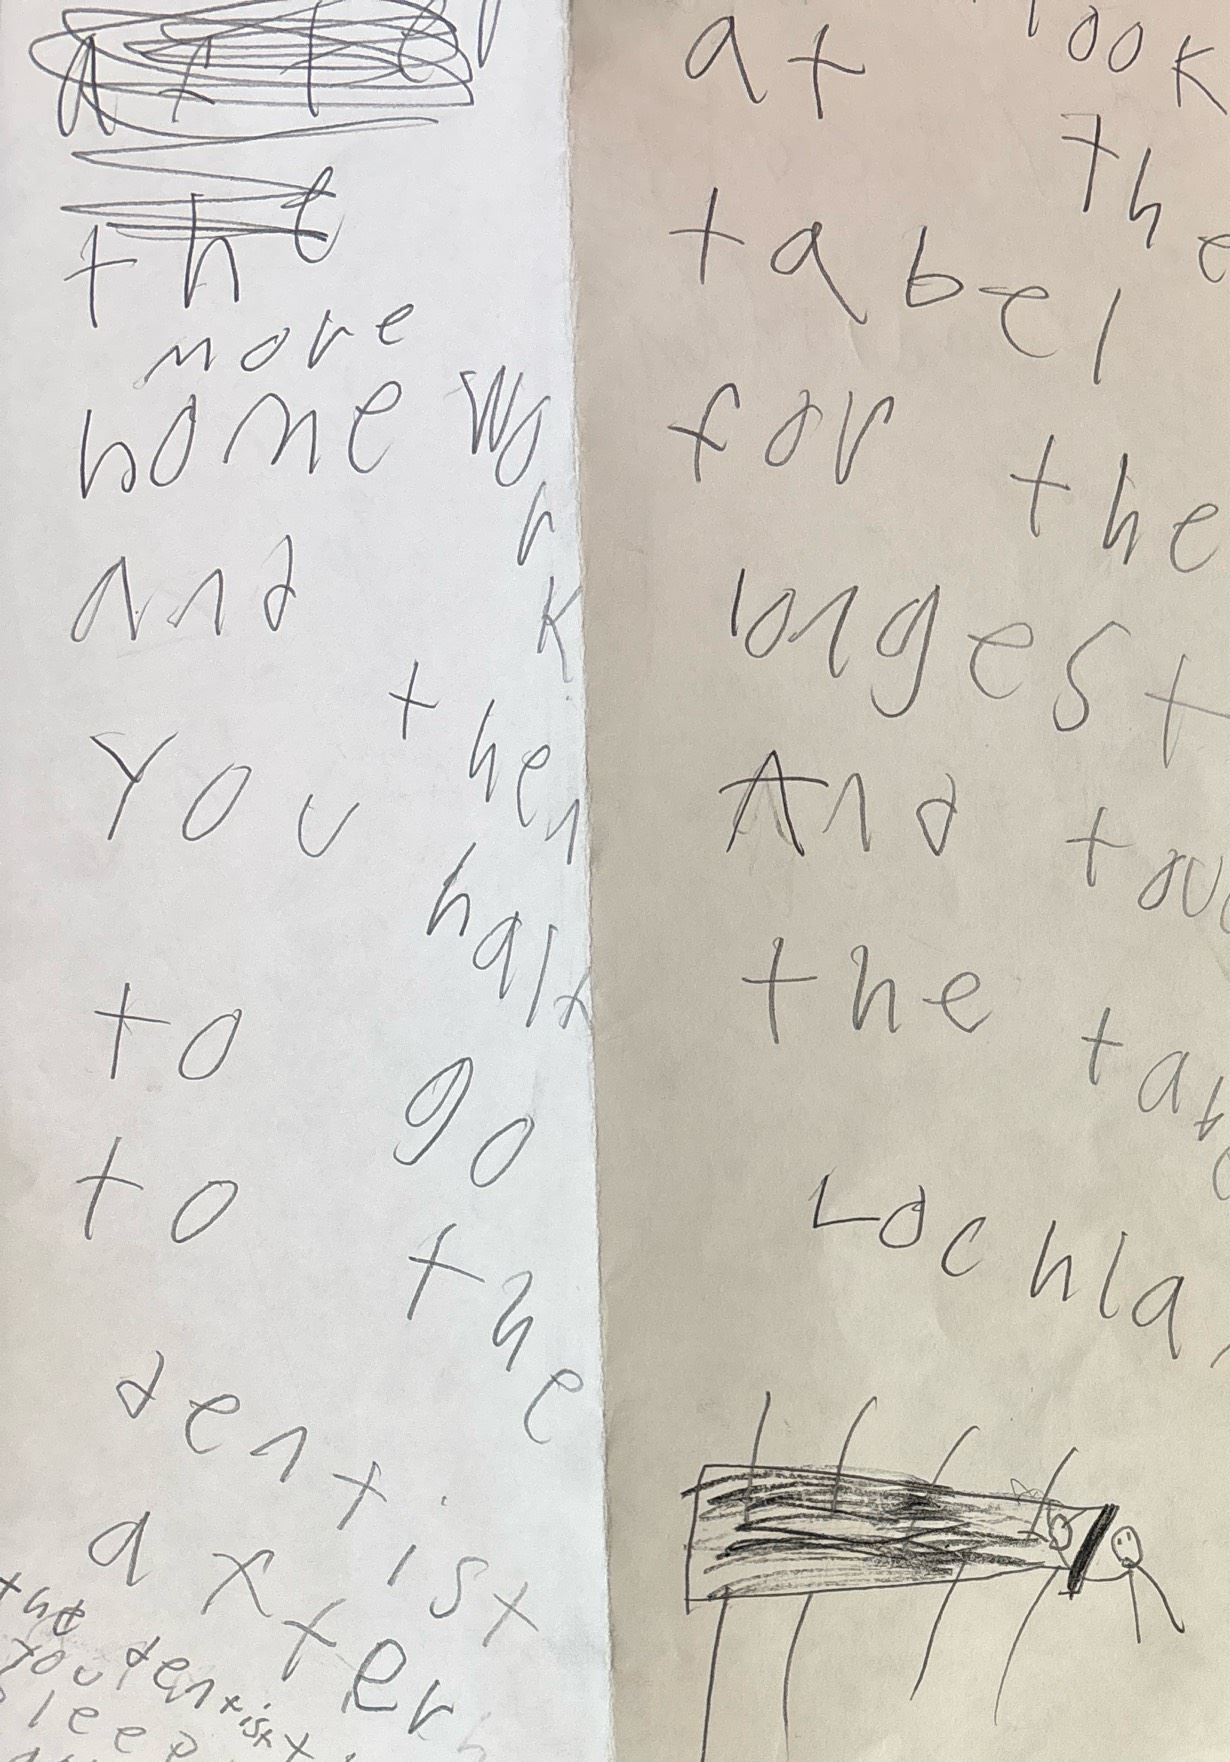 the
more
home work
and then
you half
to go
to the
dentist
axter
the dentist
you
look
at the
tabel
for the
longest
And
the
Lochla